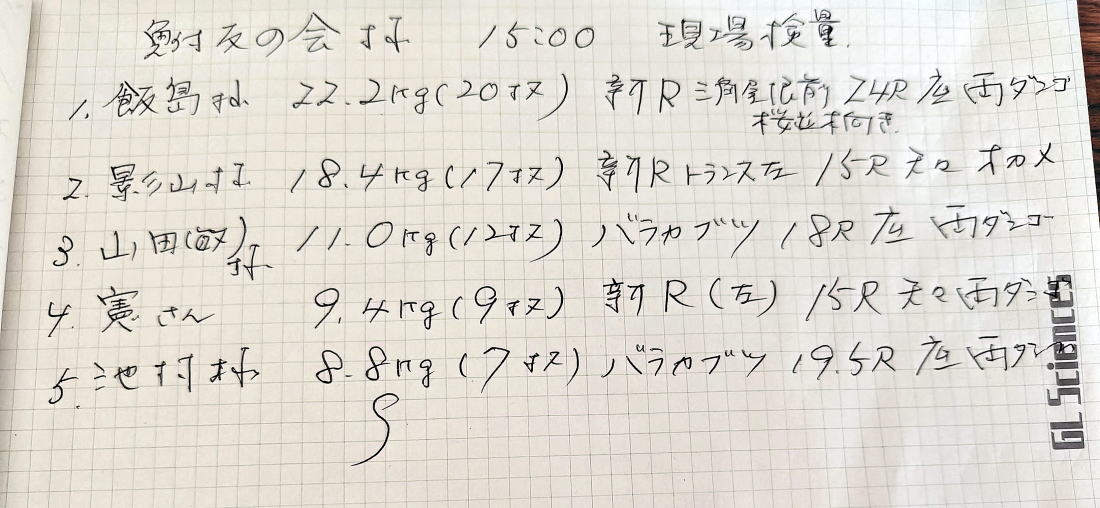 鮒友の会様 15:00 現場検量.
1. 飯島様 22.2kg(20枚) 新R三角屋化前 24R底 両ダンゴ
桜並木向き.
2. 影山様 18.4kg(17枚) 新Rトランス左 15R チョーチン オカメ
3. 山田(敏)様 11.0kg(12枚) バラカブツ 18R底 両ダンゴ
4. 寛さん 9.4kg(9枚) 新R(左) 15R 両ダンゴ
5. 池村様 8.8kg(7枚) バラカブツ 19.5R底 両ダンゴ
GL Sciences